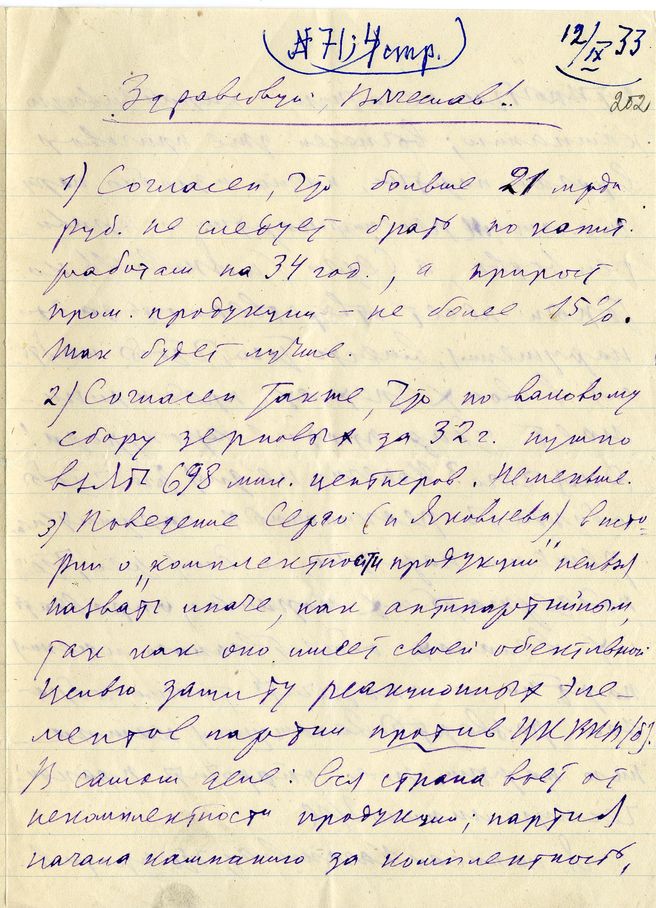 (№ 71; 4 стр.)
12/IX 33
202
Здравствуй, Вячеслав!
1) Согласен, что больше 21 млрд
руб. не следует брать по капит.
работам на 34 год., а прирост
пром. продукции – не более 15%.
Так будет лучше.
2) Согласен также, что по валовому
сбору зерновых за 32 г. нужно
взять 698 мил. центнеров. Не меньше.
3) Поведение Серго (и Яковлева) в исто-
рии о „комплектности продукции" нельзя
назвать иначе, как антипартийным,
так как оно имеет своей обективной
целью защиту реакционных эле-
ментов партии против ЦК ВКП(б).
В самом деле: вся страна воет от
некомплектности продукции; партия
начала кампанию за комплектность,